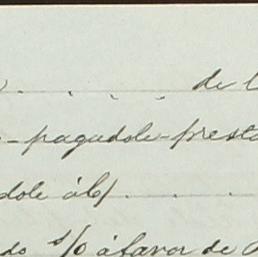 de l
pagadole-presta
dole á b/
do s/o á favor de